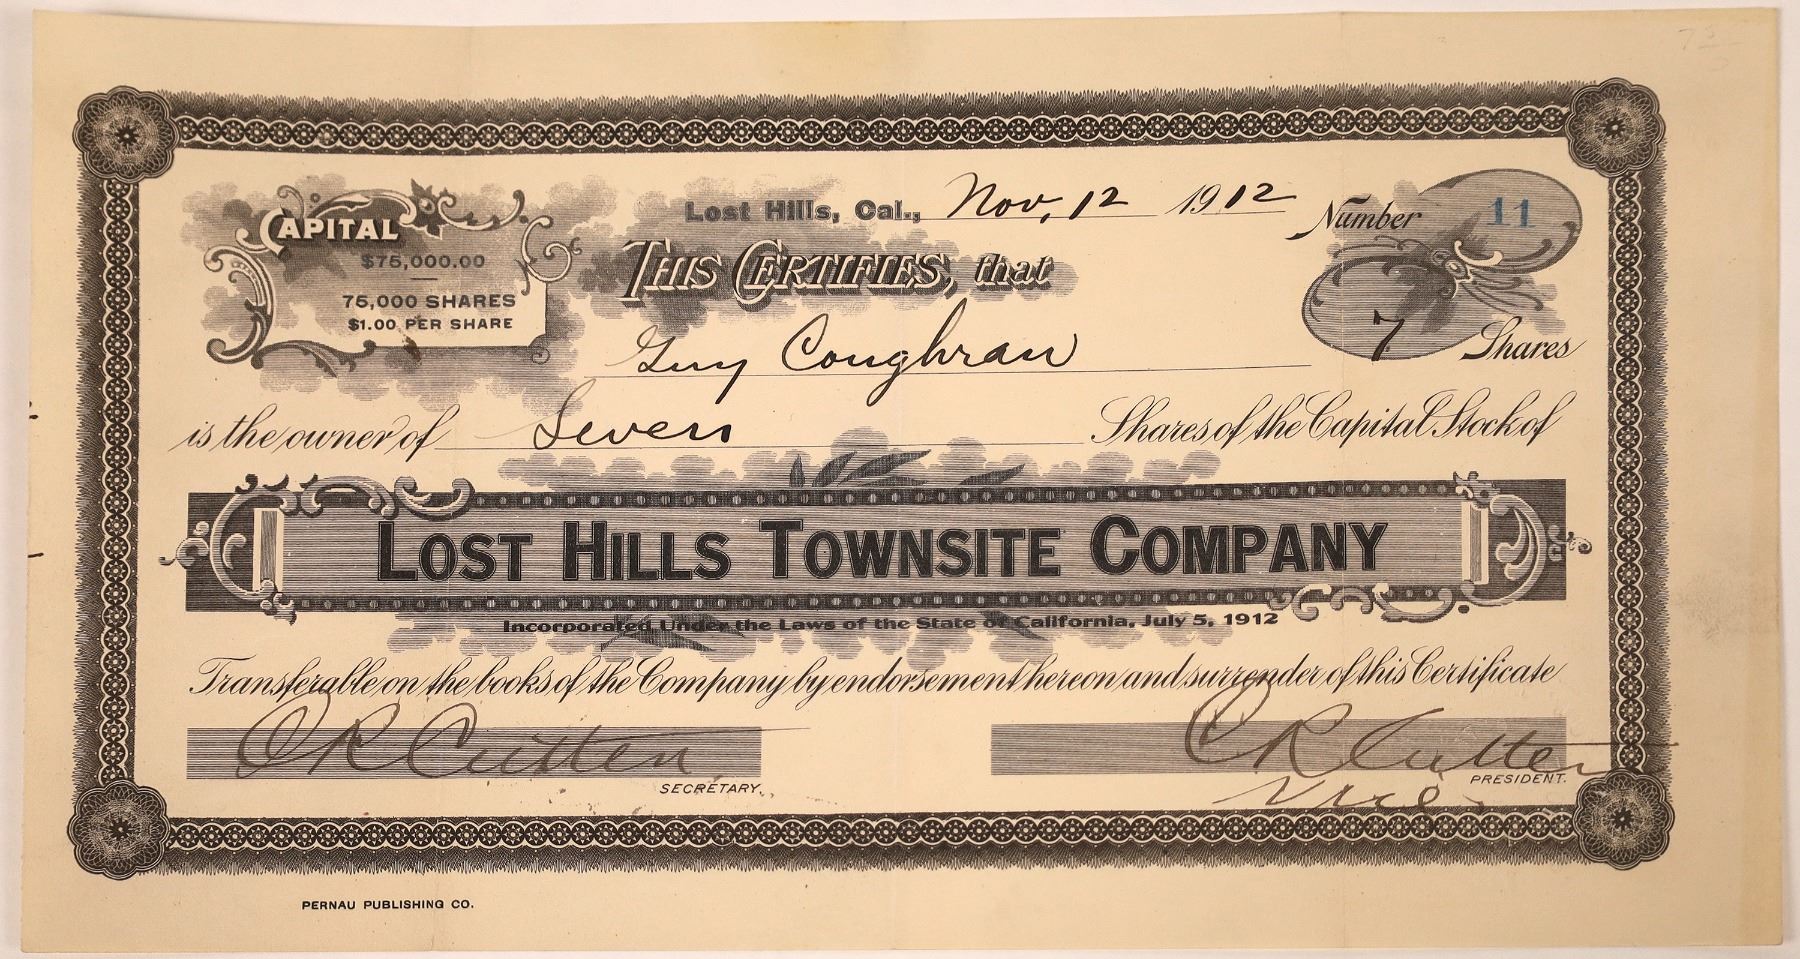 Lost Hills, Cal., Nov. 12 1912
Number 11
CAPITAL
$75,000.00
75,000 SHARES
$1.00 PER SHARE
THIS CERTIFIES, that
Guy Coughran
7 Shares
is the owner of Seven Shares of the Capital Stock of
LOST HILLS TOWNSITE COMPANY
Incorporated Under the Laws of the State of California, July 5, 1912
Transferable on the books of the Company by endorsement hereon and surrender of this Certificate
CR Cutten
SECRETARY.
CR Cutten
PRESIDENT.
Vice
PERNAU PUBLISHING CO.